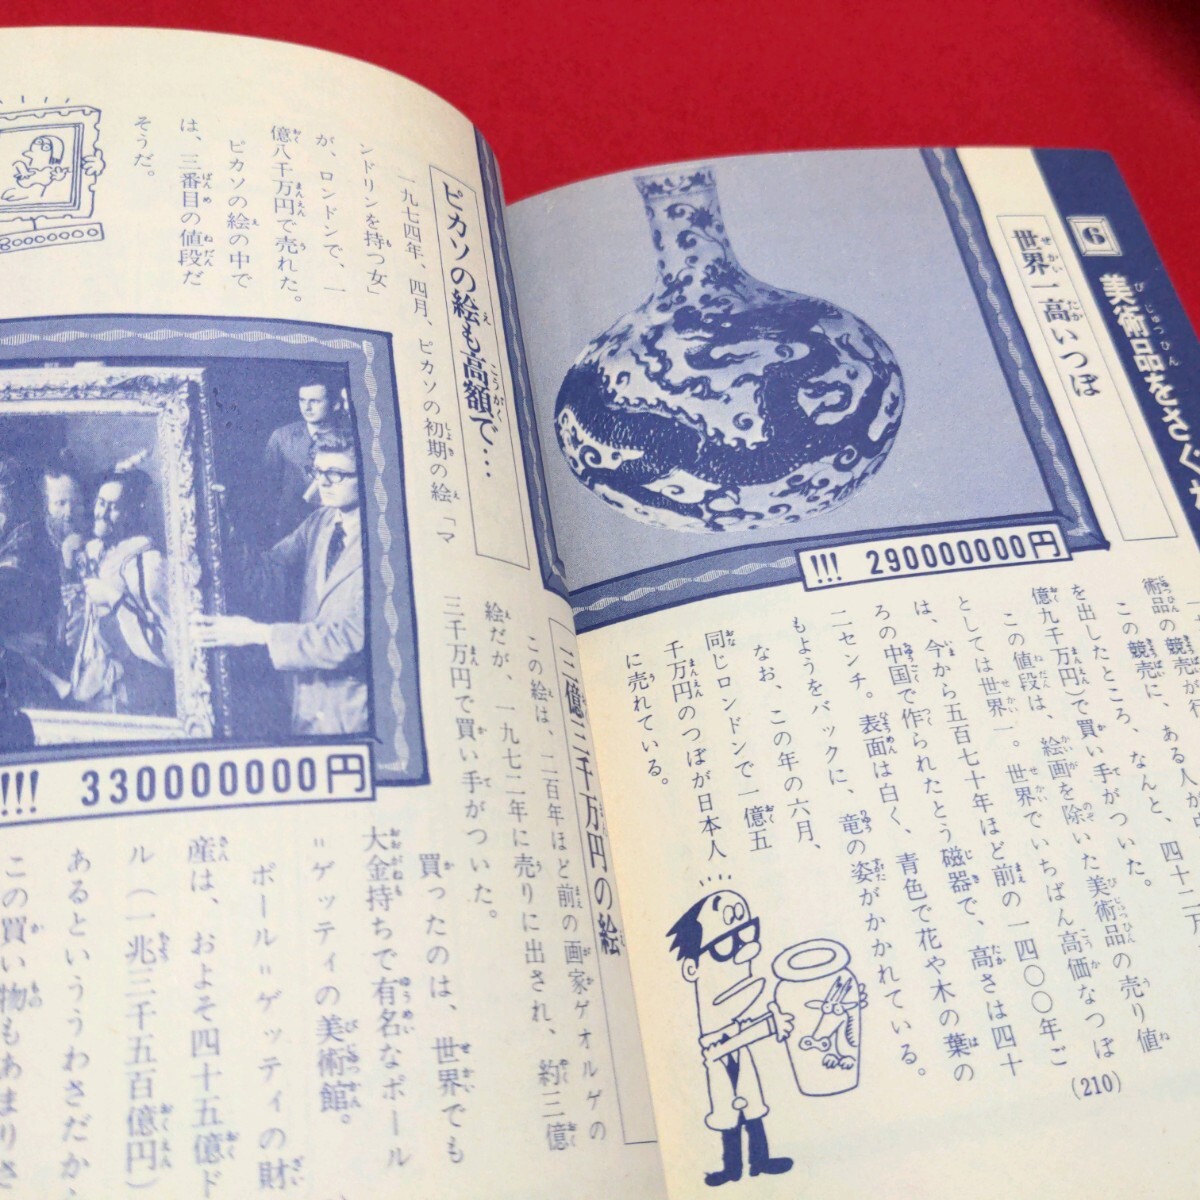 6
美術品をさぐ
世界一高いつぼ
!!! 290000000円
術品の競売が行
この競売に、ある人が
を出したところ、なんと、四十二万
億九千万円)で買い手がついた。
この値段は、絵画を除いた美術品の売り値
としては世界一。世界でいちばん高価なつぼ
は、今から五百七十年ほど前の一四〇〇年ご
ろの中国で作られたとう磁器で、高さは四十
二センチ。表面は白く、青色で花や木の葉の
もようをバックに、竜の姿がかかれている。
なお、この年の六月、
同じロンドンで一億五
千万円のつぼが日本人
に売れている。
(210)
ピカソの絵も高額で…
一九七四年、四月、ピカソの初期の絵「マ
ンドリンを持つ女」
が、ロンドンで、一
億八千万円で売れた。
ピカソの絵の中で
は、三番目の値段だ
そうだ。
三億三千万円の絵
この絵は、二百年ほど前の画家ゲオルゲの
絵だが、一九七二年に売りに出され、約三億
三千万円で買い手がついた。
!!! 330000000円
買ったのは、世界でも
大金持ちで有名なポール
"ゲッティの美術館。
ポール"ゲッティの財
産は、およそ四十五億ド
ル(一兆三千五百億円)
あるといううわさだか
この買い物もあまりさ